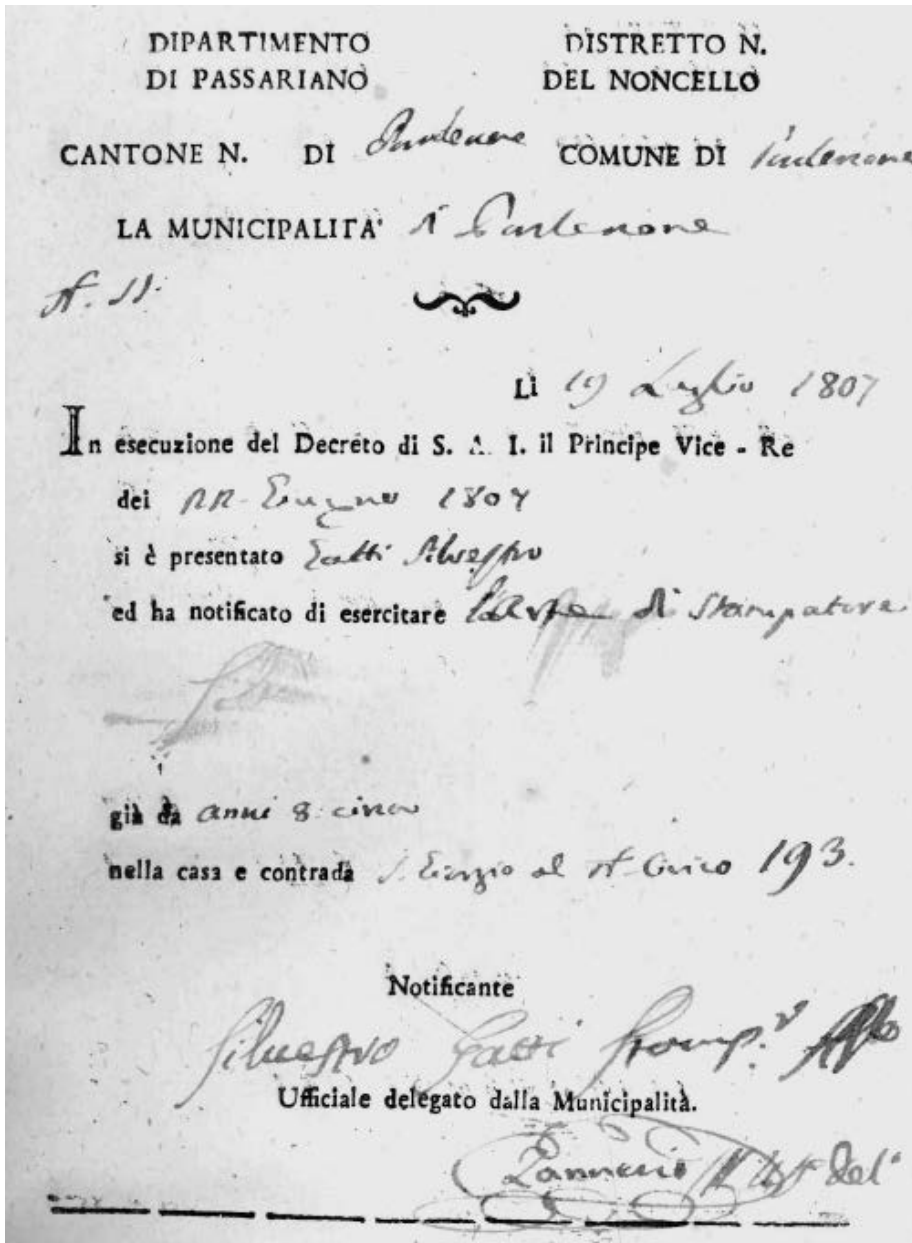 DIPARTIMENTO DI PASSARIANO
DISTRETTO N. DEL NONCELLO
CANTONE N. DI Pordenone COMUNE DI Pordenone
LA MUNICIPALITA' di Pordenone
N. 11.
Li 19 Luglio 1807
In esecuzione del Decreto di S. A. I. il Principe Vice - Re
dei Giugno 1807
si è presentato Gatti Silvestro
ed ha notificato di esercitare l'Arte di Stampatore
già da anni 8 circa
nella casa e contrada S. Giorgio al N. Civico 193.
Notificante
Silvestro Gatti Stamp.r
Ufficiale delegato dalla Municipalità.
Del.